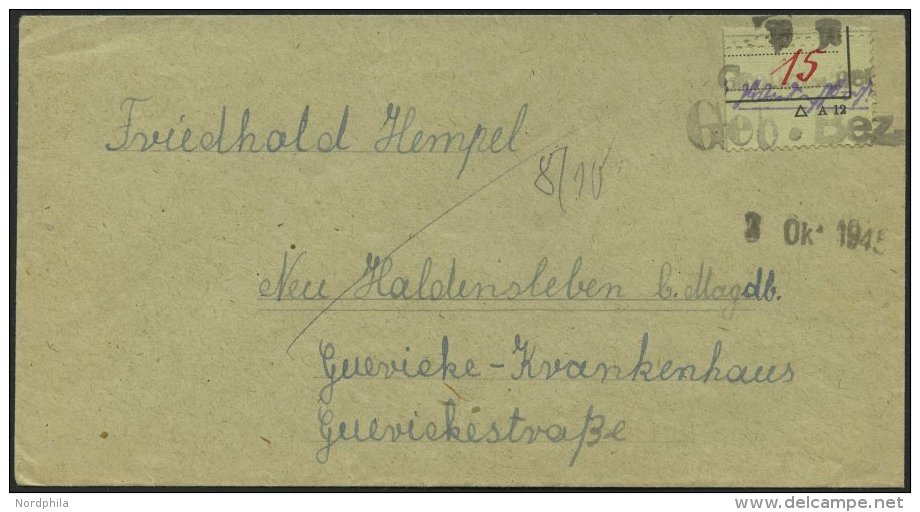 15
△ A 12
Geb. Bez
Friedhold Hempel
8/10
3 Okt 1945
Neu Haldensleben b. Magdb.
Guericke-Krankenhaus
Guerickestraße
Nordphila
www.delcampe.net